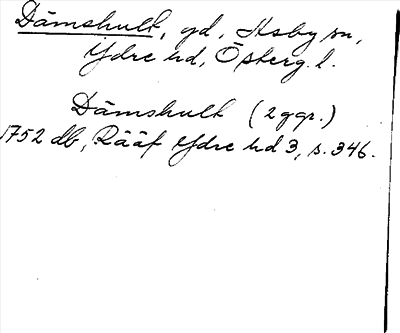 Dämshult, gd, Asby sn,
Ydre hd, Österg. l.
Dämshult (2 ggr.)
1752 db, Rääf Ydre hd 3, s. 346.